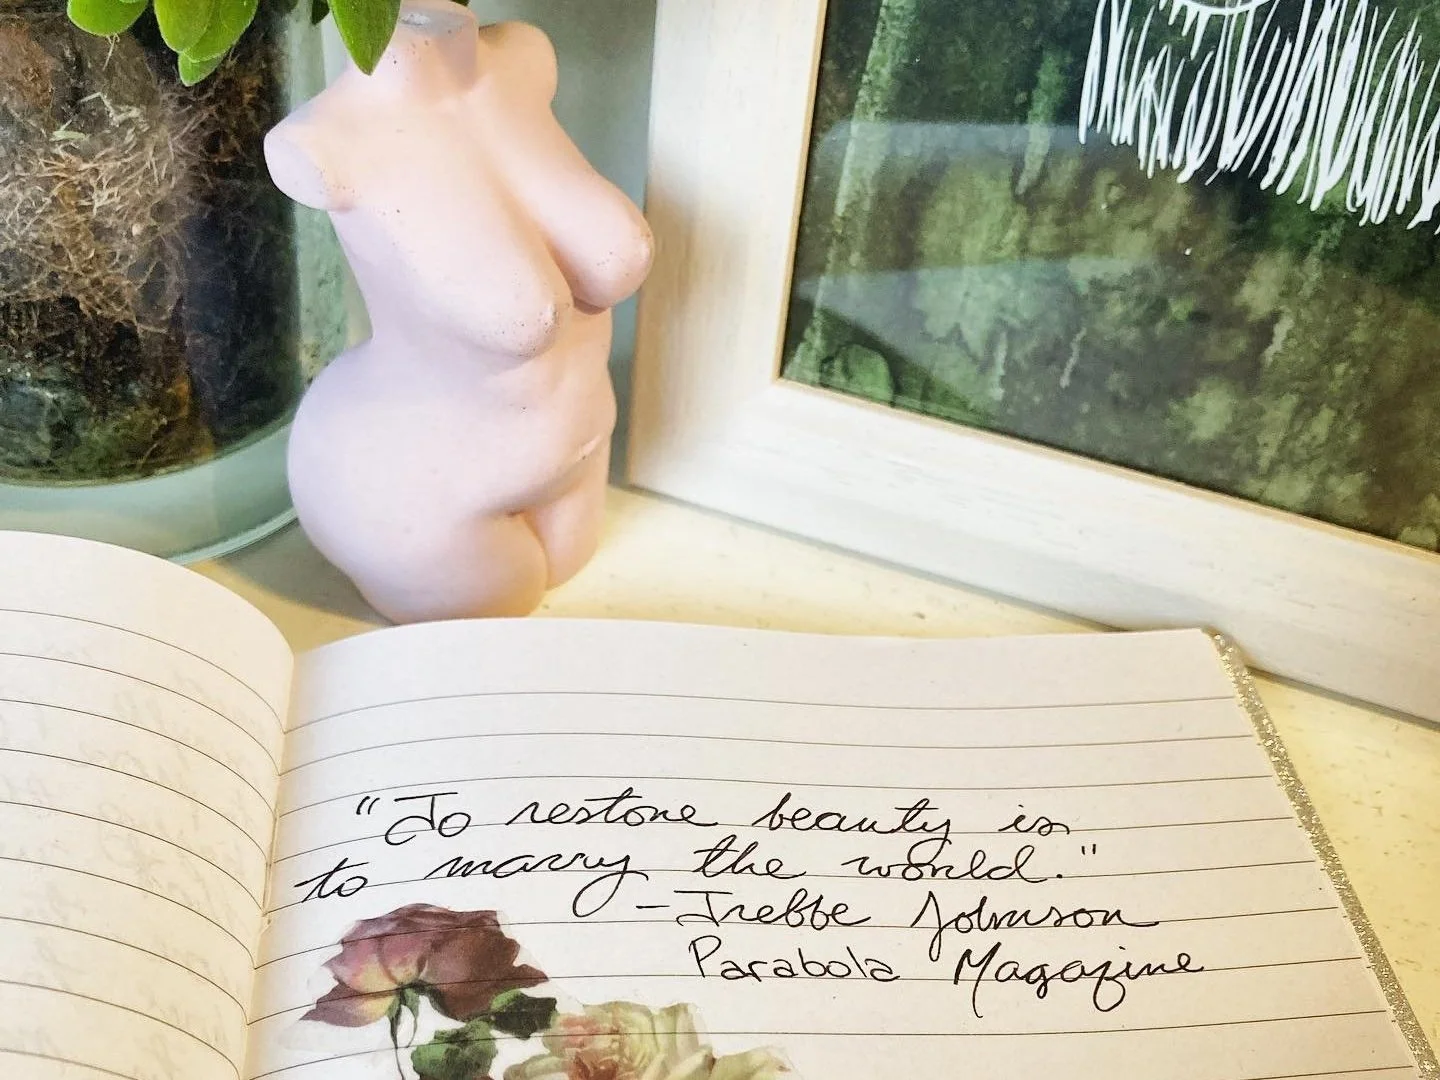 "To restore beauty is
to marry the world."
- Trebbe Johnson
Parabola Magazine